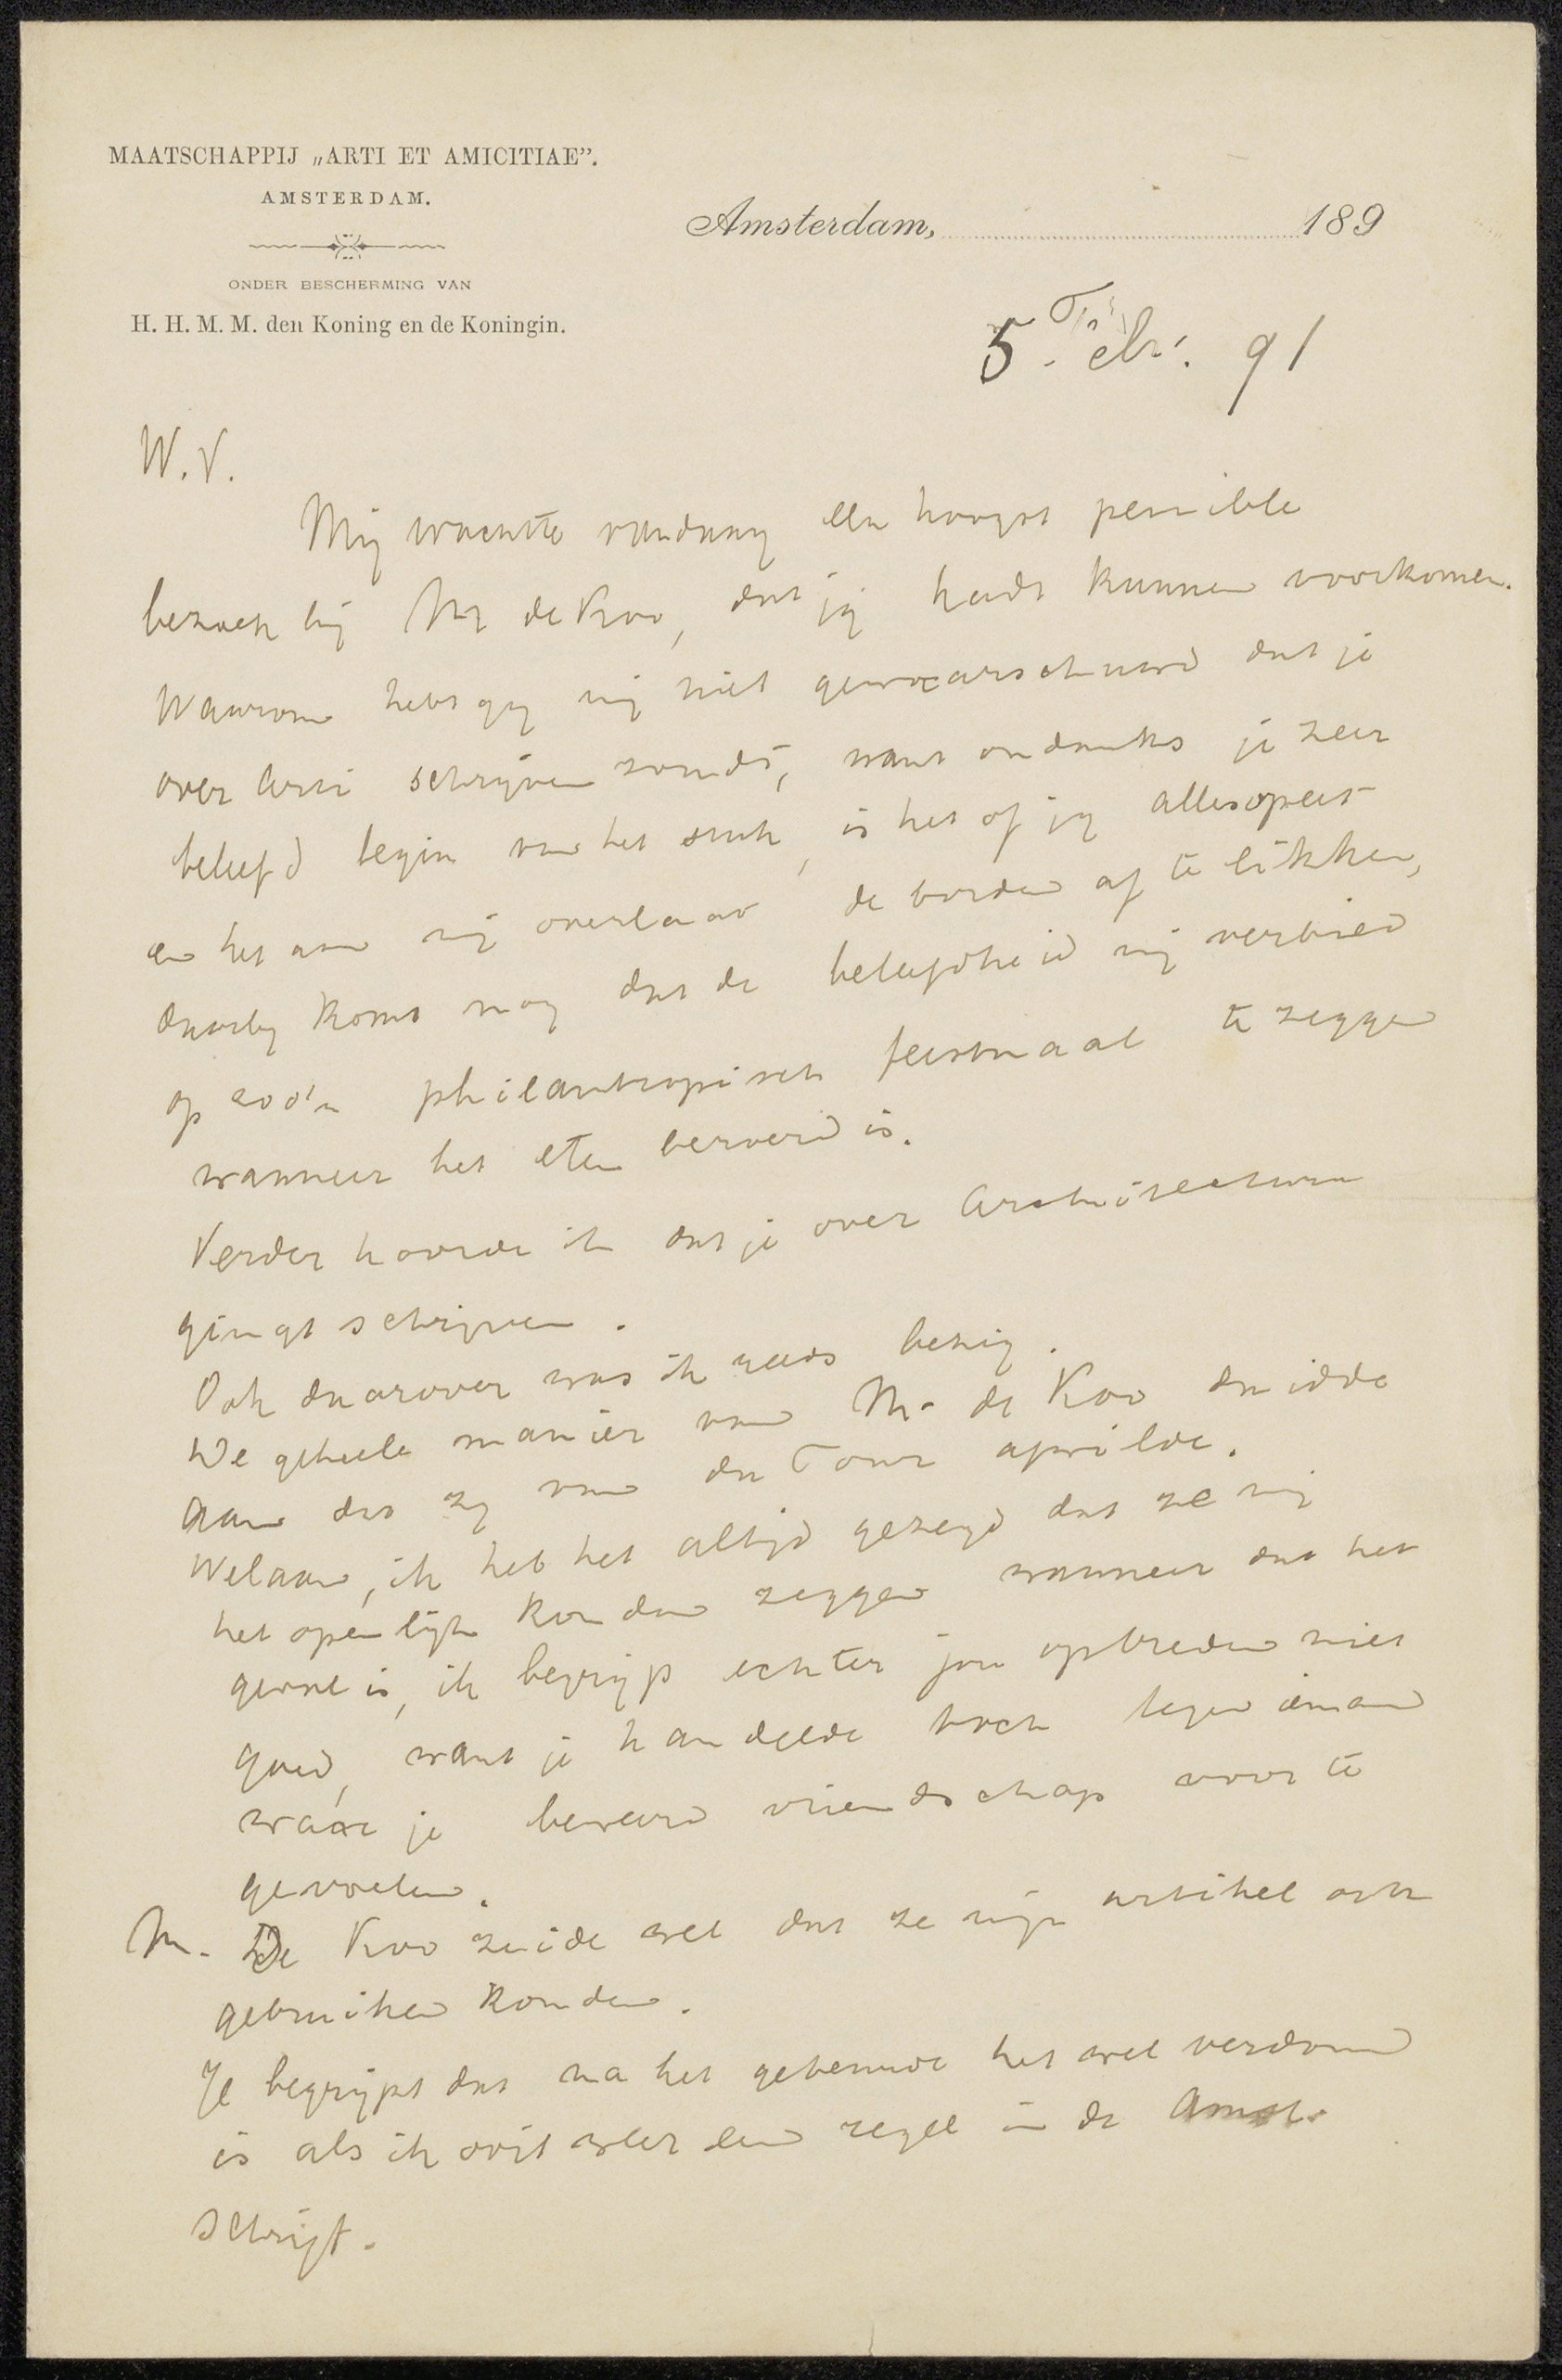 MAATSCHAPPIJ „ARTI ET AMICITIAE”.
AMSTERDAM.
ONDER BESCHERMING VAN
H. H. M. M. den Koning en de Koningin.
Amsterdam, 189
5. Febr. 91
W. V.
Mij wachtte vandaag een hoogst penible
bezoek bij Mr de Koo, dat jij hadt kunnen voorkomen.
Waarom hebt gij mij niet gewaarschuwd dat je
over Arti schrijven zoudt, want ondanks je zeer
beleefd begin van het stuk, is het of jij alles opeet
en het aan mij overlaat de borden af te likken,
daarbij komt nog dat de beleefdheid mij verbied
op zoo'n philantropisch feestmaal te zeggen
wanneer het eten bedervd is.
Verder hoorde ik dat je over Architectuur
gingt schrijven.
Ook daarover was ik reeds bezig.
De geheele manier van Mr de Koo duidde
aan dat zij van der Tour aprilde.
Welaan, ik heb het altijd gezegd dat ze mij
het openlijk konden zeggen wanneer dat het
geval is, ik begrijp echter jou optreden niet
goed, want je handelde toch tegen iemand
waar je beweerd vriendschap voor te
gevoelen.
Mr. De Koo zeide wel dat ze mijn artikel ook
gebruiken konden.
Je begrijpt dat na het gebeurde het wel verdomd
is als ik ooit weer een regel in de Amst.
schrijf.